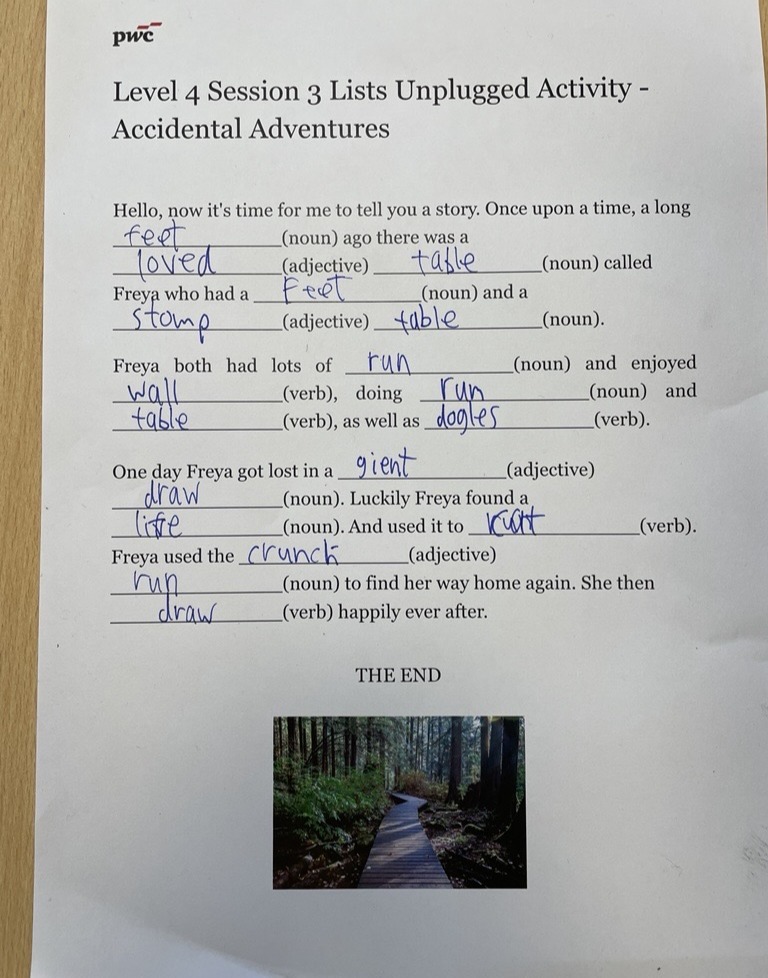 pwc
Level 4 Session 3 Lists Unplugged Activity -
Accidental Adventures
Hello, now it's time for me to tell you a story. Once upon a time, a long
feet (noun) ago there was a
loved (adjective) table (noun) called
Freya who had a Feet (noun) and a
stomp (adjective) table (noun).
Freya both had lots of run (noun) and enjoyed
wall (verb), doing run (noun) and
table (verb), as well as dogles (verb).
One day Freya got lost in a gient (adjective)
draw (noun). Luckily Freya found a
life (noun). And used it to (verb).
Freya used the crunch (adjective)
run (noun) to find her way home again. She then
draw (verb) happily ever after.
THE END